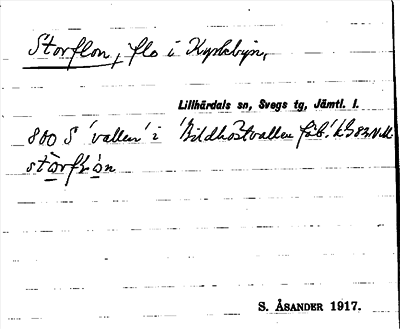 Storflon, flo i Kyrkbyn,
Lillhärdals sn, Svegs tg, Jämtl. l.
800 S 'vallen' i 'Bildhöstvallen fäb.'
stårfɫon
S. ÅSANDER 1917.